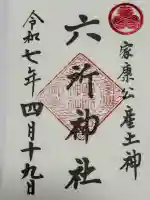 家康公産土神
六所神社
令和七年四月十九日